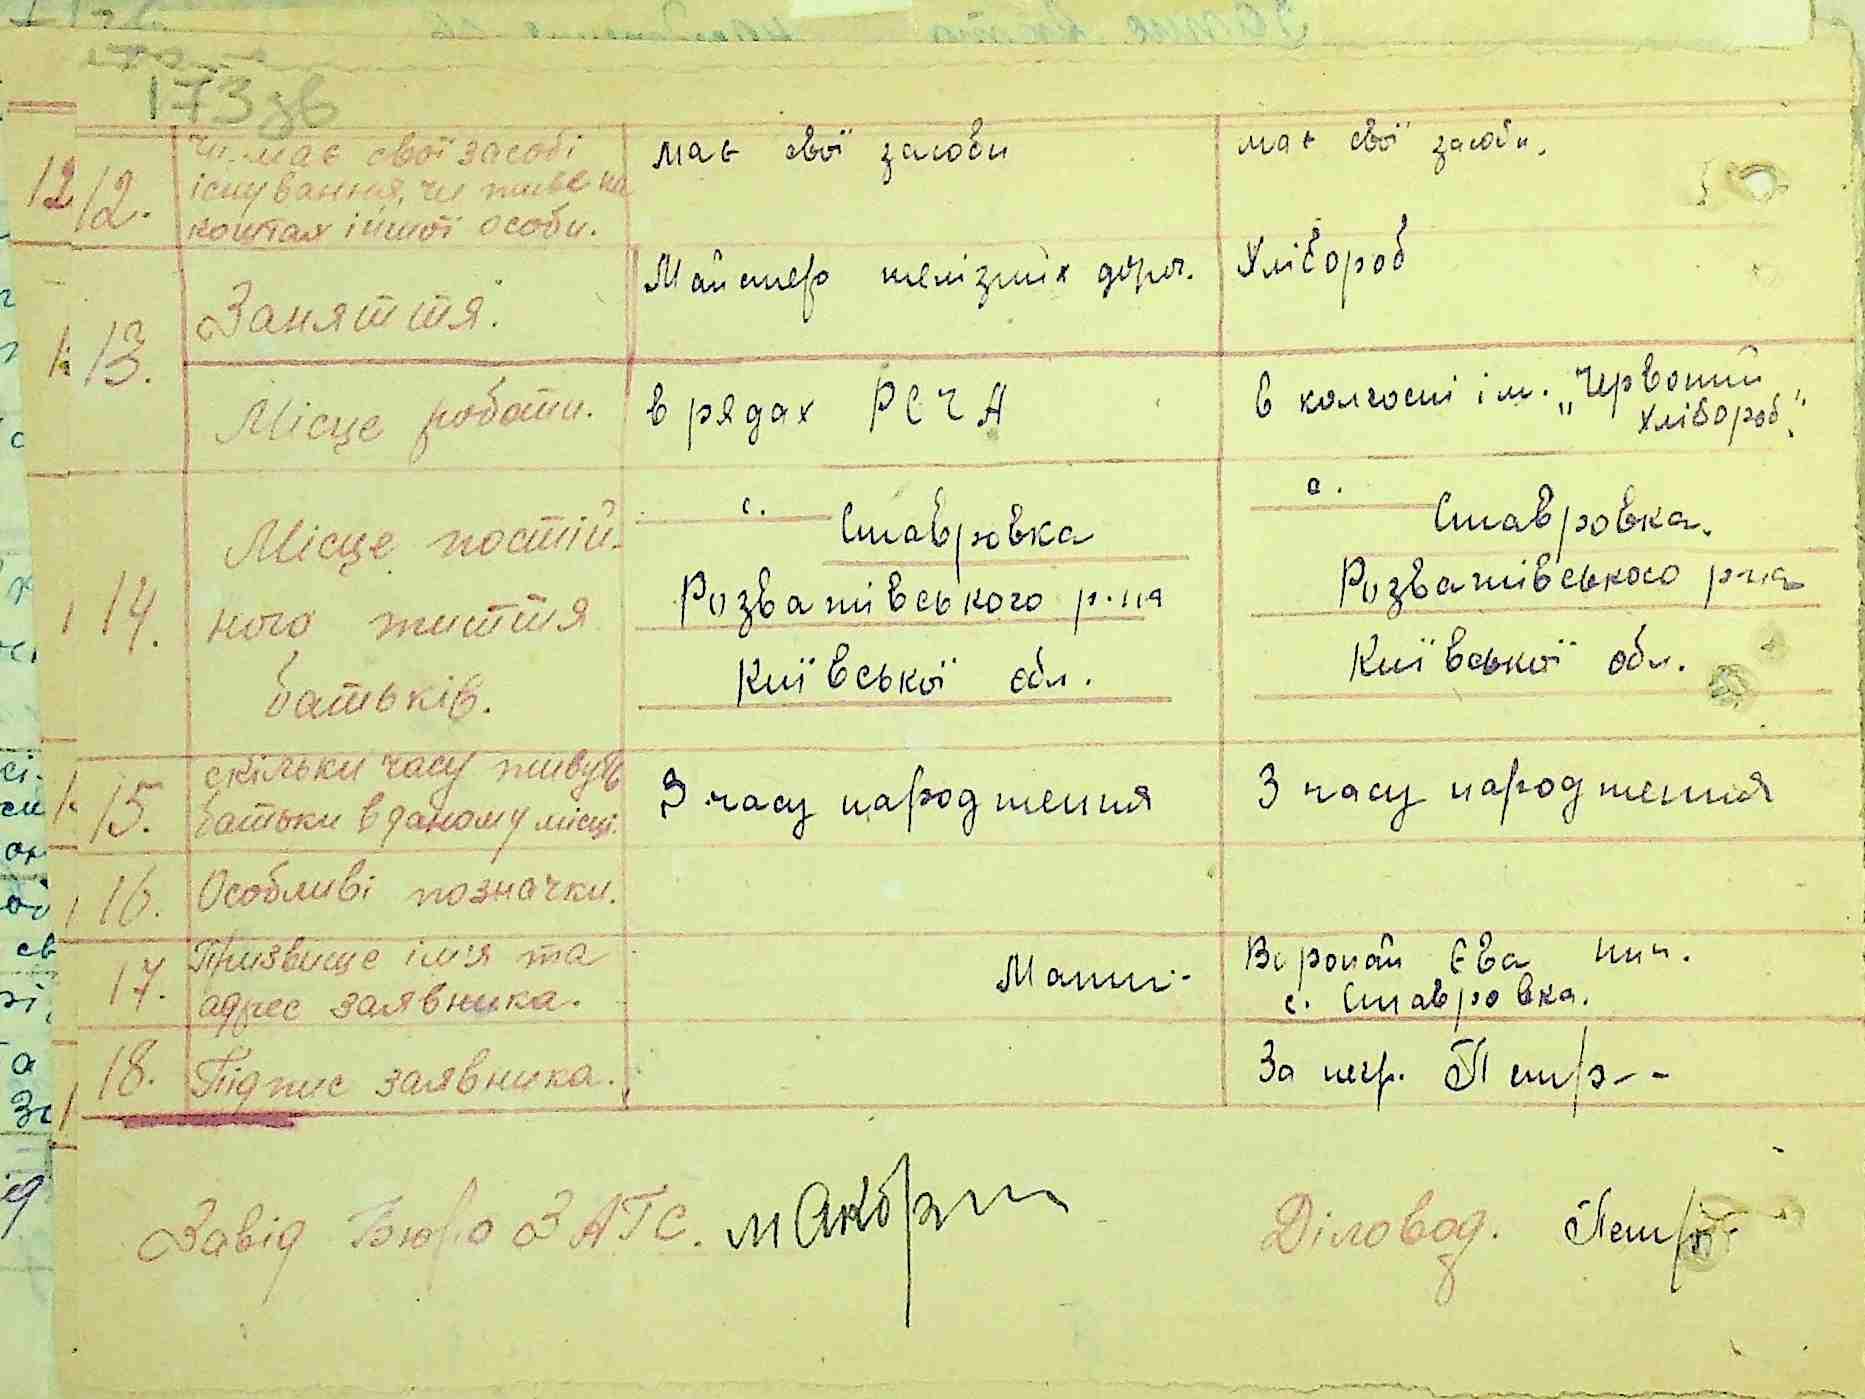 173зв
12. Чи має свої засобі
існування, чи живе на
коштах іншої особи.
має свої засоби
має свої засоби.
13. Заняття.
Майстер желізних дорог.
Хлібороб
Місце роботи.
в рядах РСЧА
в колгоспі ім. "Червоний
хлібороб".
14. Місце постій-
ного життя
батьків.
с. Ставровка
Розважівського р-на
Київської обл.
с. Ставровка.
Розважівського р-на
Київської обл.
15. скільки часу живуть
батьки в даному місці.
З часу народження
З часу народження
16. Особливі позначки.
17. Призвище ім'я та
адрес заявника.
Мати:-
Воропай Єва Ник.
с. Ставровка.
18. Підпис заявника.
За негр. Петр--
Завід Бюро ЗАГС.
Діловод. Петр